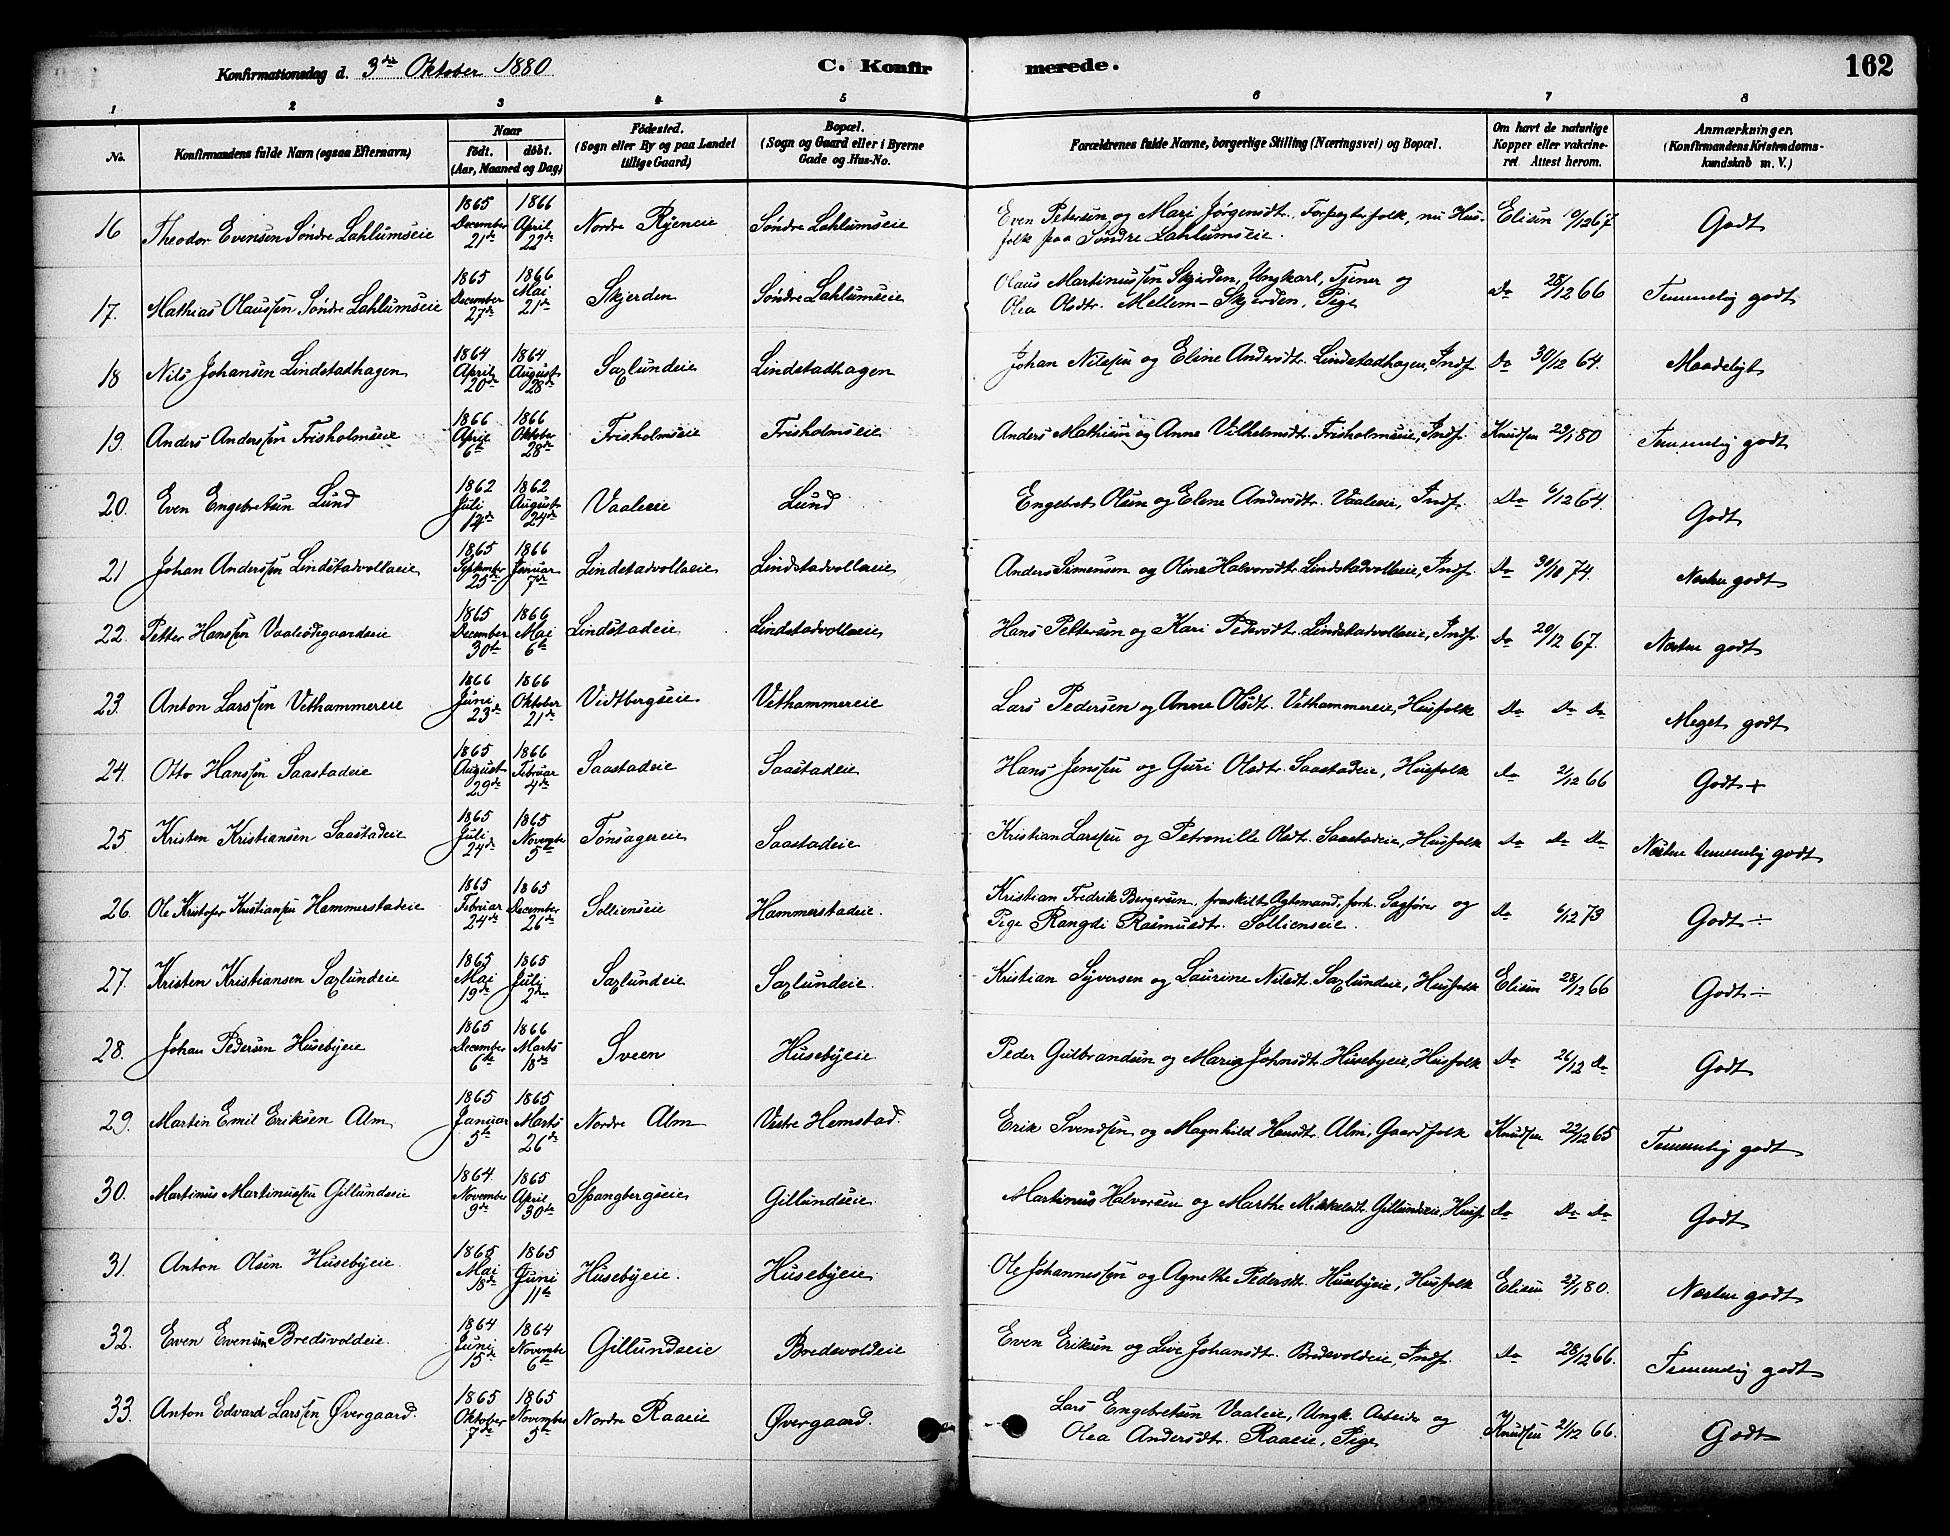 Konfirmationsdag d. 3die Oktober 1880 C. Konfirmerede. 162
1 2 3 4 5 6 7 8
No. Konfirmandens fulde Navn (ogsaa Efternavn) Naar født. døbt. (Aar, Maaned og Dag) Fødested. (Sogn eller By og paa Landet tillige Gaard) Bopæl. (Sogn og Gaard eller i Byerne Gade og Hus-No. Forældrenes fulde Navne, borgerlige Stilling (Næringsvei) og Bopæl. Om havt de naturlige Kopper eller vakcineret. Attest herom. Anmærkninger. (Konfirmandens Kristendomskundskab m. V.)
16 Theodor Evensen Søndre Lahlumseie 1865 December 21de 1866 April 22de Nordre Ryeneie Søndre Lahlumseie Even Petersen og Mari Jørgensdt. Forpagterfolk, nu Husfolk paa Søndre Lahlumseie. Elisen 10/12 67 Godt
17. Mathias Olaussen Søndre Lahlumseie 1865 December 27de 1866 Mai 21de Skjerden Søndre Lahlumseie Olaus Martinussen Skjerden, Ungkarl, Tjener og Olea Olsdtr. Mellem-Skjerden, Pige Do 28/12 66 Temmelig godt
18 Nils Johansen Lindstadhagen 1864 April 20de 1864 August 28de Saxlundeie Lindstadhagen Johan Nilssen og Eline Andersdt. Lindstadhagen, Indf. Do 30/12 64. Maadeligt
19. Anders Anderssen Frisholmseie 1866 April 6te 1866 Oktober 28de Frisholmseie Frisholmseie Anders Mathisen og Anne Vilhelmsdt. Frisholmseie, Indf. Knudsen 29/1 80 Temmelig godt
20. Even Engebretsen Lund 1862 Juli 12de 1862 August 24de Vaaleeie Lund Engebret Olsen og Elene Andersdt. Vaaleeie, Indf. Do 6/12 64. Godt
21 Johan Anderssen Lindstadvollaeie 1865 September 25de 1866 Januar 7de Lindstadvollaeie Lindstadvollaeie Anders Simensen og Oline Halvorsdt. Lindstadvollaeie, Indf. Do 30/10 74. Næsten godt
22. Petter Hanssen Vaalødegaardseie 1865 December 30te 1866 Mai 6te Lindstadeie Lindstadvollaeie Hans Pettersen og Kari Pedersdt. Lindstadvollaeie, Indf. Do 20/12 67. Næsten godt
23. Anton Larssen Vethammereie 1866 Juni 23de 1866 Oktober 21de Vidtbergseie Vethammereie Lars Pedersen og Anne Olsdt. Vethammereie, Husfolk Do Do Do Meget godt
24. Otto Hanssen Saastadeie 1865 August 29de 1866 Februar 4de Saastadeie Saastadeie Hans Jenssen og Guri Olsdt. Saastadeie, Husfolk Do 2/12 66 Godt +
25. Kristen Kristiansen Saastadeie 1865 Juli 24de 1865 Novembr 5te Tønsagereie Saastadeie Kristian Larssen og Petronille Olsdt. Saastadeie, Husfolk Do Do Do Næsten temmelig godt
26. Ole Kristofer Kristianssen Hammerstadeie 1865 Februar 24de 1865 December 26de Sollienseie Hammerstadeie. Kristian Fredrik Bergersen, fraskilt Ægtemand, forh. Sagfører og Pige Rangdi Rasmusdt. Sollienseie. Do 6/12 73 Godt ÷
27. Kristen Kristiansen Saxlundeie 1865 Mai 19de 1865 Juli 2den Saxlundeie Saxlundeie. Kristian Syversen og Laurine Nilsdt. Saxlundeie, Husfolk Elisen 28/12 66 Godt ÷
28. Johan Pedersen Husebyeie 1865 December 6te 1866 Marts 18de Sveen Husebyeie Peder Gulbrandsen og Maria Johnsdt. Husebyeie, Husfolk Do 26/12 Do Godt
29. Martin Emil Eriksen Alm 1865 Januar 5te 1865 Marts 26de Nordre Alm Vestre Hemstad. Erik Svendsen og Magnhild Hansdt. Alm, Gaardfolk Knudsen 22/12 65 Temmelig godt
30. Martinus Martinussen Gillundseie 1864. November 9de 1865 April 30te Spangbergseie Gillundseie Martinus Halvorsen og Marthe Mikkelsdt. Gillundseie, Husf. Do Do Do Godt
31. Anton Olsen Husebyeie. 1865 Mai 18de 1865 Juni 11te Husebyeie. Husebyeie Ole Johannessen og Agnethe Pedersdt. Husebyeie, Husfolk Elisen 27/1 80. Næsten godt
32. Even Evensen Bredsvoldeie. 1864 Juni 15de 1864 Novembr 6te Gillundseie Bredsvoldeie Even Eriksen og Live Johansdt. Bredsvoldeie, Indf. Do 28/12 66. Temmelig godt
33. Anton Edvard Larssen Øvergaard. 1865 Oktober 7de 1865 November 5te Nordre Raaeie Øvergaard. Lars Engebretsen Vaaleie, Ungk. Arbeider og Olea Andersdt. Raaeie, Pige Knudsen 2/12 66. Godt